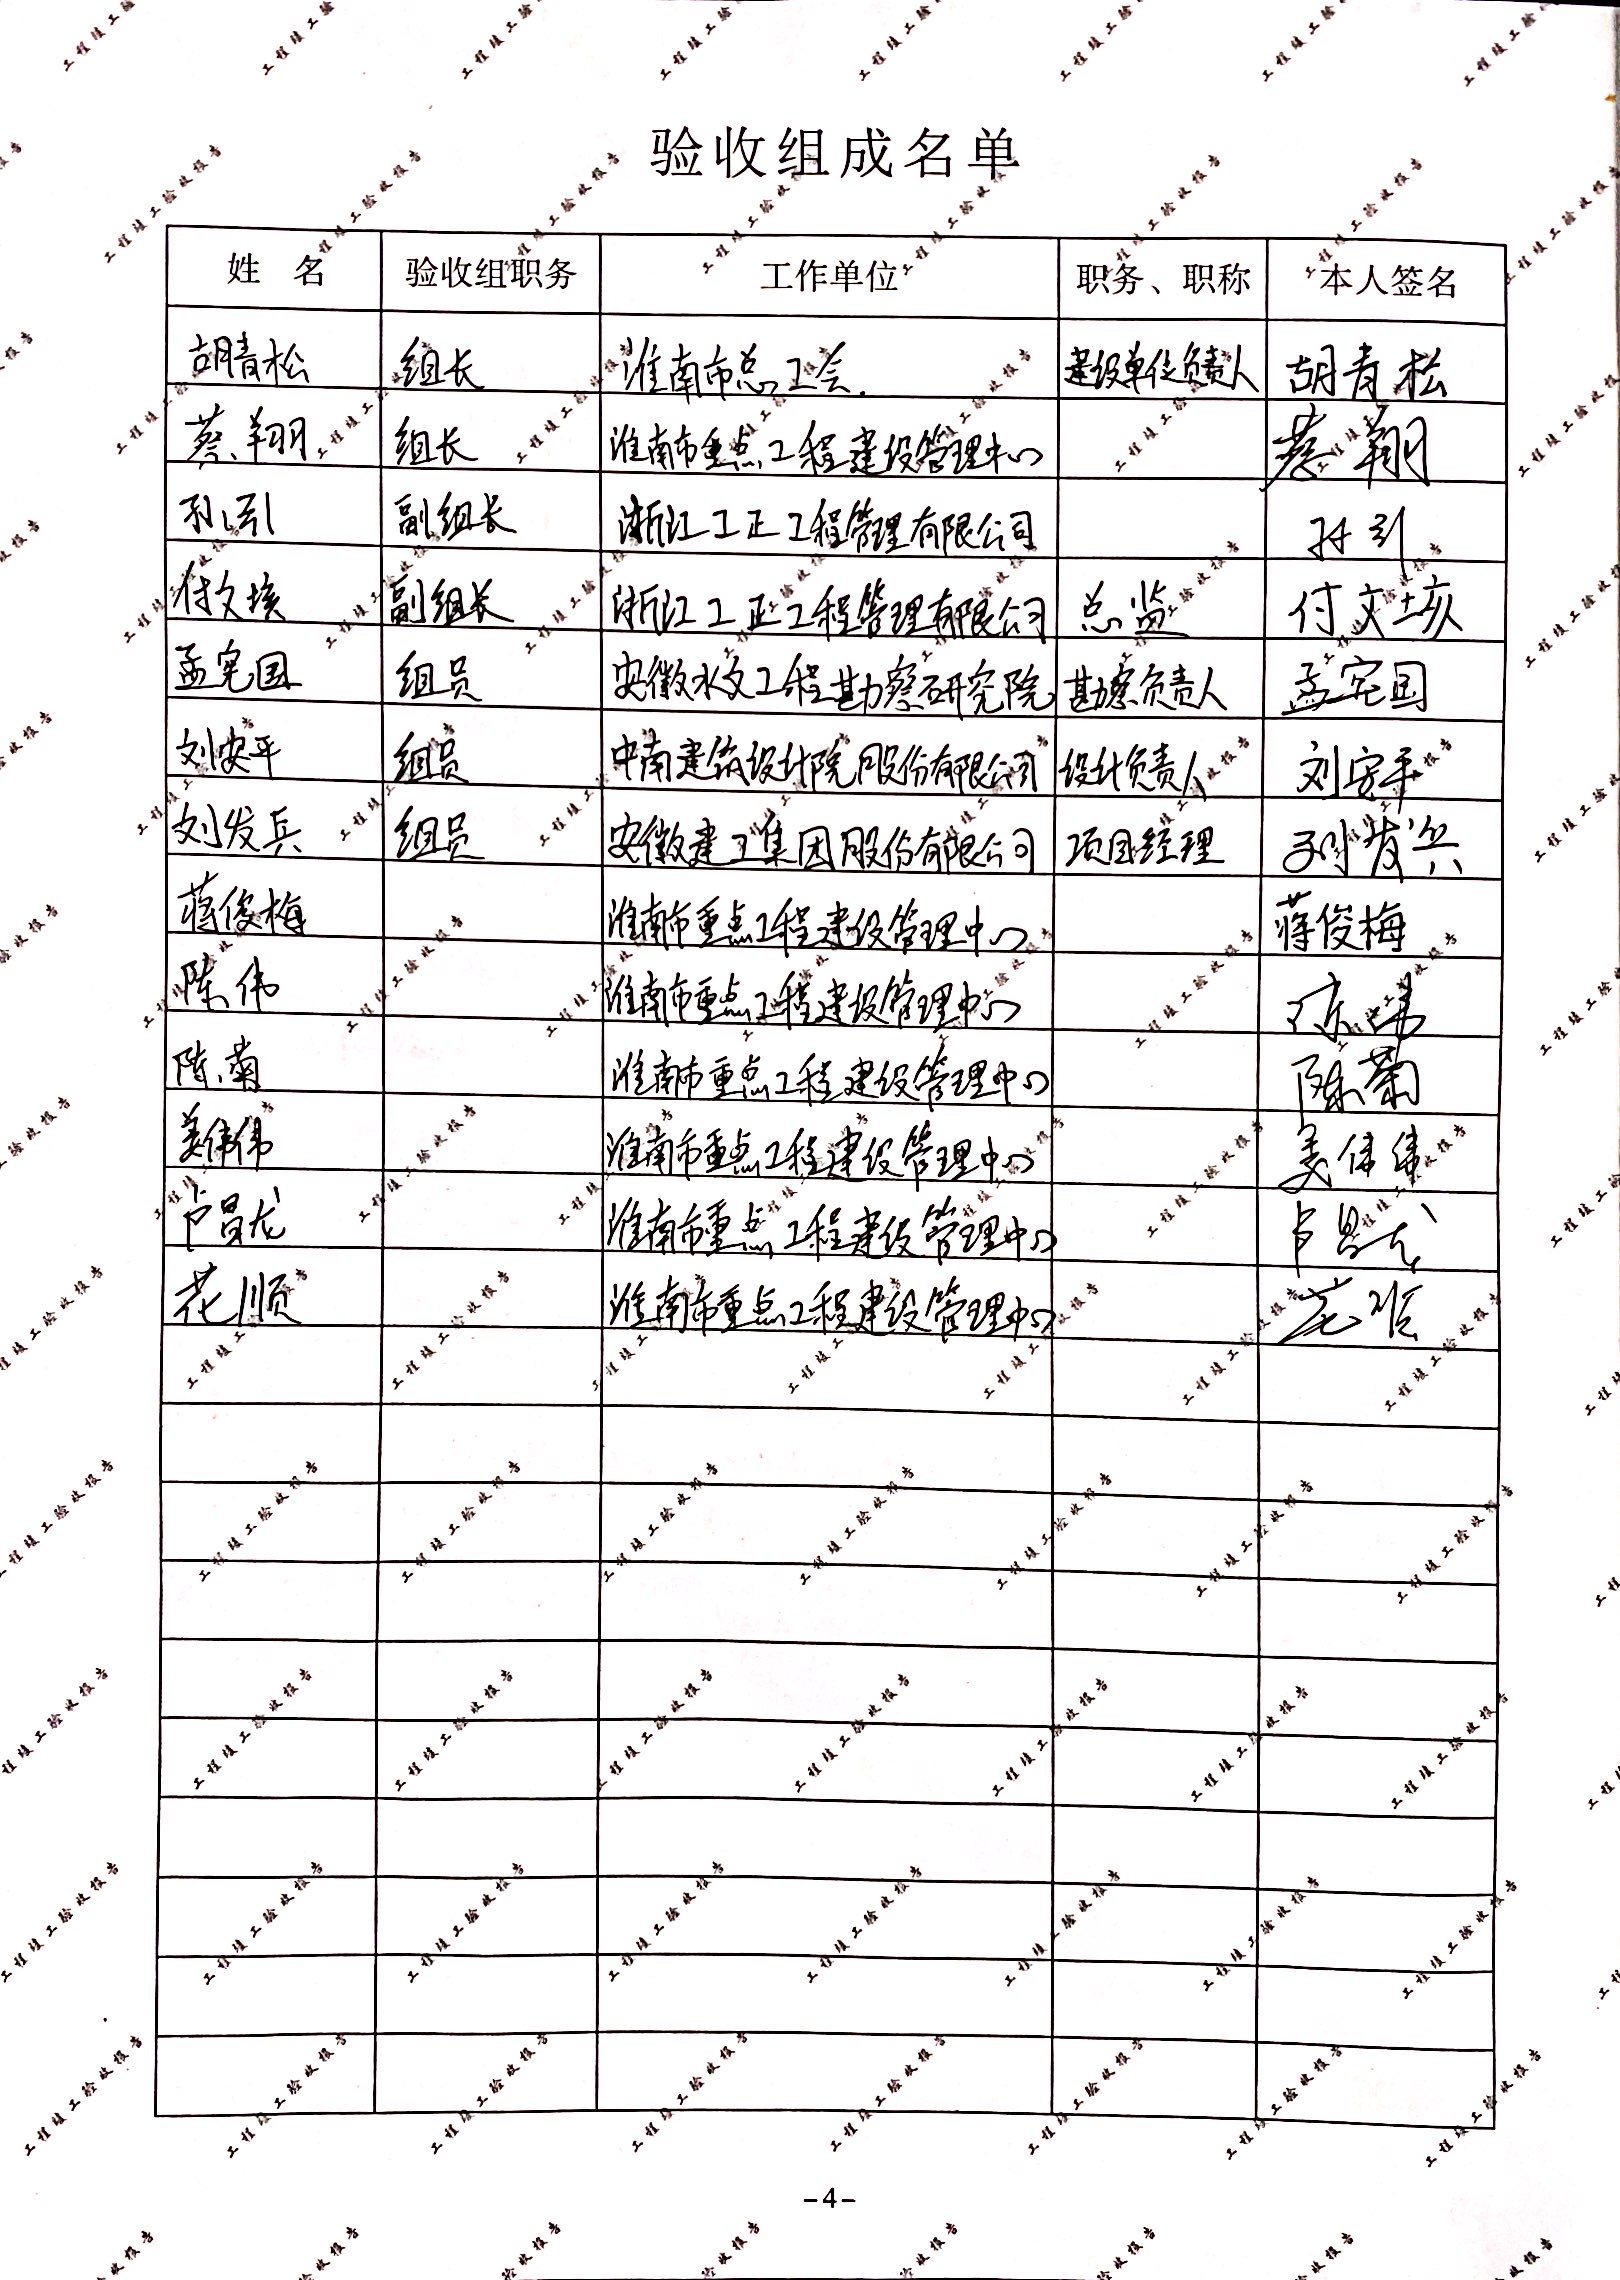 验收组成名单
姓 名 验收组职务 工作单位 职务、职称 本人签名
胡青松 组长 淮南市总工会. 建设单位负责人 胡青松
蔡翔 组长 淮南市重点工程建设管理中心 蔡翔
孙引 副组长 浙江工正工程管理有限公司 孙引
付文垓 副组长 浙江工正工程管理有限公司 总监 付文垓
孟宪国 组员 安徽水文工程勘察研究院 勘察负责人 孟宪国
刘安平 组员 中南建筑设计院股份有限公司 设计负责人 刘安平
刘发兵 组员 安徽建工集团股份有限公司 项目经理 刘发兵
蒋俊梅 淮南市重点工程建设管理中心 蒋俊梅
陈伟 淮南市重点工程建设管理中心 陈伟
陈菊 淮南市重点工程建设管理中心 陈菊
姜伟伟 淮南市重点工程建设管理中心 姜伟伟
卢昌龙 淮南市重点工程建设管理中心 卢昌龙
花顺 淮南市重点工程建设管理中心 花顺
-4-
工程竣工验收报告